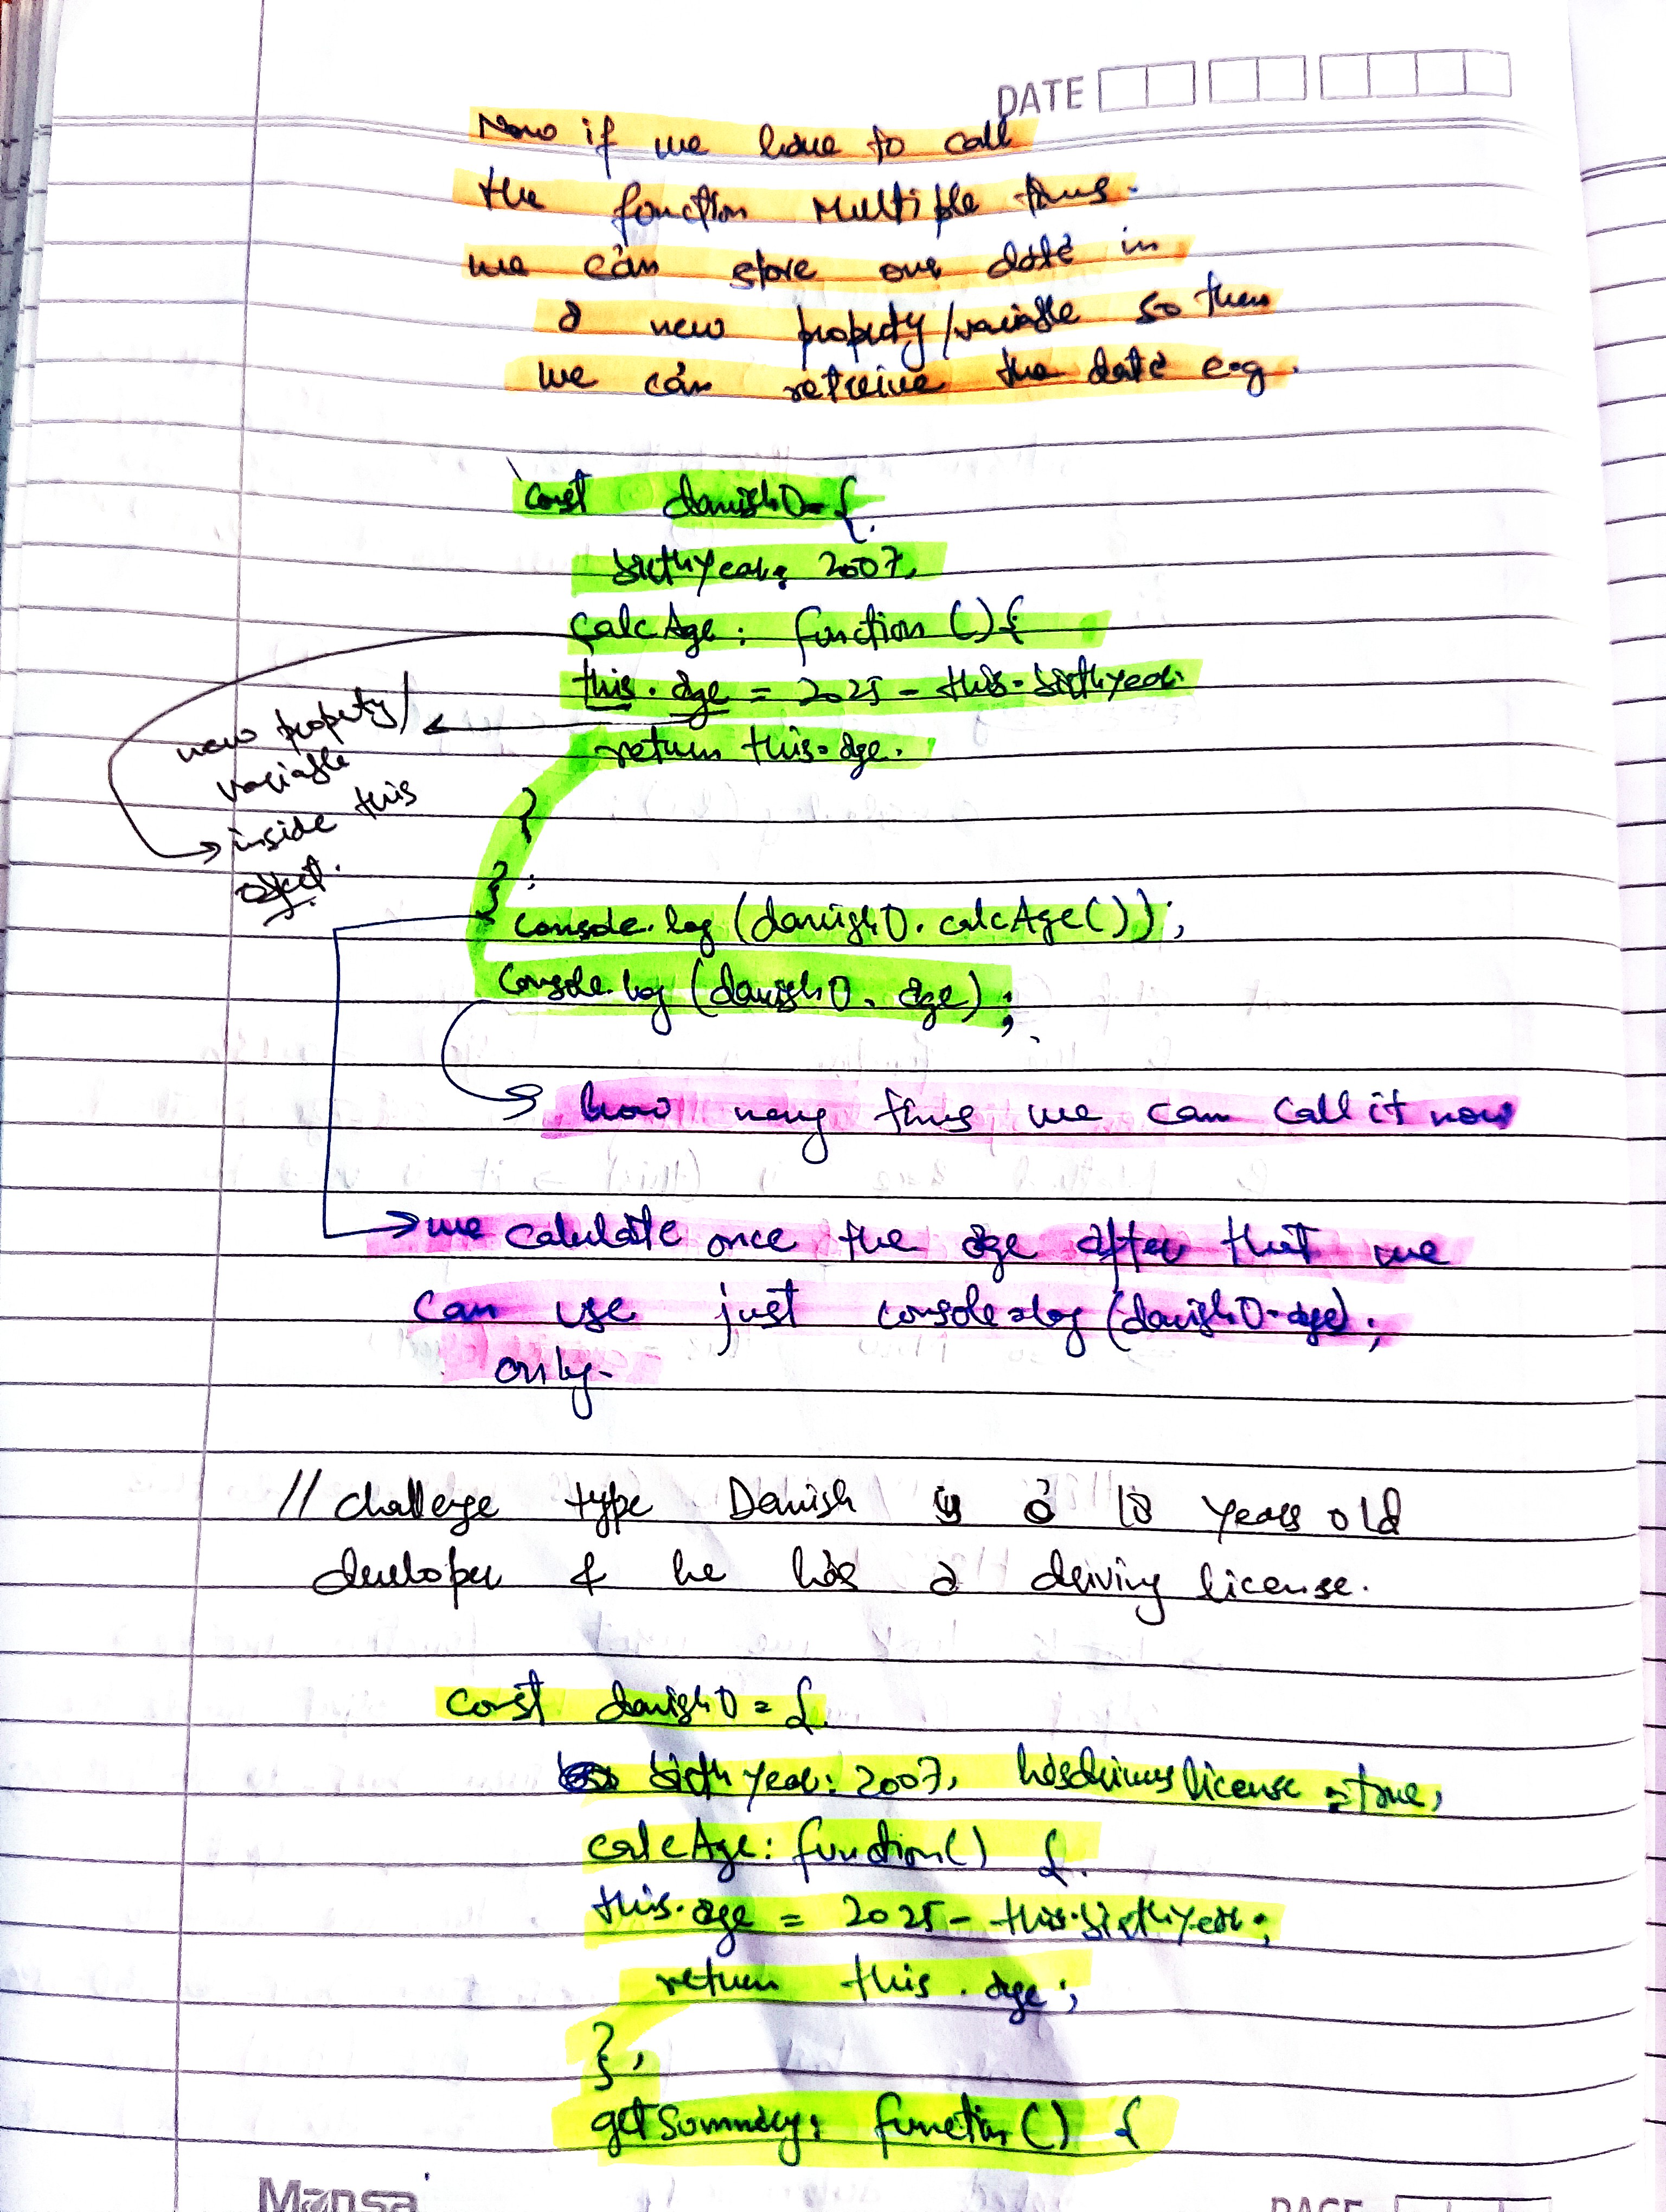 DATE
Now if we have to call
the function Multiple times.
we can store our data in
a new property/variable so then
we can retreive the data e.g.
const danishO = {
birthyear: 2007,
calcAge: function () {
this.age = 2025 - this.birthyear.
return this.age.
}
};
new property/
variable
inside this
object.
console.log (danishO.calcAge());
console.log (danishO.age);
how many times we can call it now
we calculate once the age after that we
can use just console.log (danishO.age);
only.
// challenge type Danish is a 18 years old
developer & he has a driving license.
const danishO = {
birthyear: 2007, hasdriverslicense = true,
calcAge: function() {
this.age = 2025 - this.birthyear;
return this.age;
},
getSummary: function () {
Mansa
PAGE